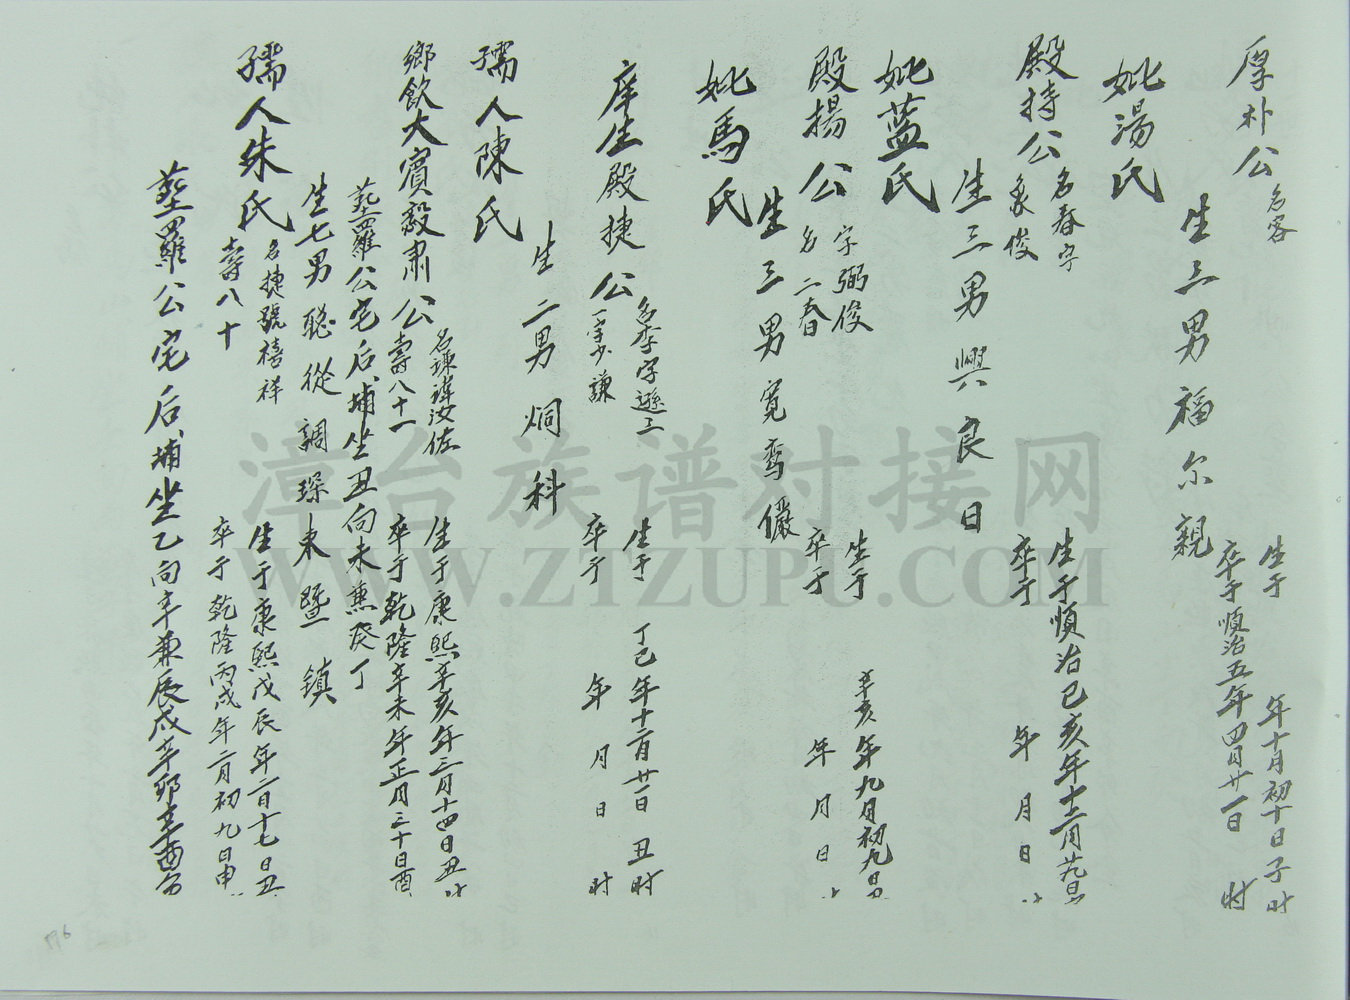 厚朴公 名容
生于 年十月初十日子时
卒于順治五年四月廿一日 时
生三男 福 尔 親
妣湯氏
殿持公 名春字
象俊
生于順治己亥年十二月廿九日
卒于 年 月 日
生三男 興 良 日
妣藍氏
殿揚公 字弼俊
名二春
生于 辛亥年九月初九日
卒于 年 月 日
生三男 寬 鸾 儼
妣馬氏
庠生殿捷公 名李字遜三
一字少謙
生于 丁巳年十二月廿一日 丑时
卒于 年 月 日 时
生二男 炯 科
孺人陳氏
鄉飲大賓毅肅公 名諌諱汝佐
壽八十一
生于康熙辛亥年三月十四日丑
卒于乾隆辛未年正月三十日酉
塟羅公宅后埔坐丑向未兼癸丁
生七男 聡 從 調 琛 東 暨 鎮
孺人朱氏 名捷號禧祥
壽八十
生于康熙戊辰年二月十七日丑
卒于乾隆丙戌年二月初九日申
塟羅公宅后埔坐乙向辛兼辰戌辛卯辛酉分
漳台族谱对接网
WWW.ZTZUPU.COM